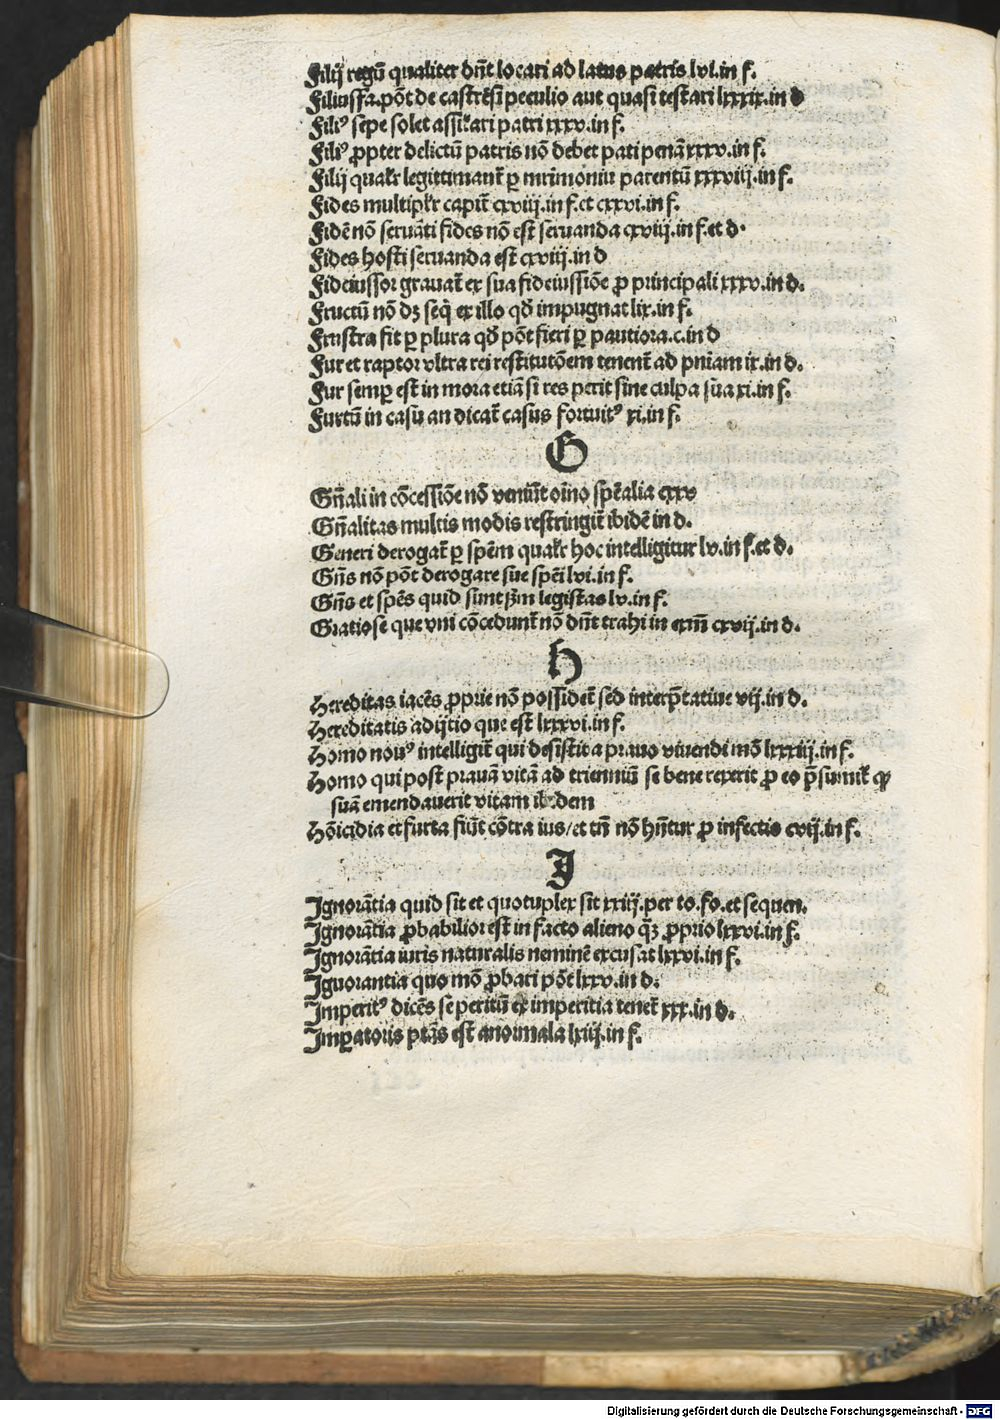 Filij regū qualiter dn̄t locari ad latus patris lvi.in f.
Filiusfa.pōt de castrēsi peculio aut quasi testari lxxxix.in d
Filiꝰ sepe solet assil'ari patri xxxv.in f.
Filiꝰ ꝓpter delictū patris nō debet pati penā xxxv.in f.
Filij qual'r legittimant̄ ꝑ mr̄imoniu parentū xxxviij.in f.
Fides multipl'r capit̄ cxviij.in f.et cxxvi.in f.
Fidē nō seruāti fides nō est seruanda cxviij.in f.et d.
Fides hosti seruanda est cxviij.in d
Fideiussor grauat̄ ex sua fideiussiōe ꝓ principali xxxv.in d.
Fructū nō dꝫ seq̄ ex illo qd̄ impugnat lix.in f.
Frustra fit ꝑ plura qd̄ pōt fieri ꝑ pautiora.c.in d
Fur et raptor vltra rei restitutōem tenent̄ ad pn̄iam ix.in d.
Fur semꝑ est in mora etiā si res perit sine culpa sua xi.in f.
Furtū in casu an dicat̄ casus fortuitꝰ xi.in f.
G
Gn̄ali in cōcessiōe nō veniūt oīno spēalia cxxv
Gn̄alitas multis modis restringit̄ ibidē in d.
Generi derogat̄ ꝑ spēm qual'r hoc intelligitur lv.in f.et d.
Gn̄s nō pōt derogare sue spēi lvi.in f.
Gn̄s et spēs quid sunt ẜm legistas lv.in f.
Gratiose que vni cōcedunt̄ nō dn̄t trahi in exm̄ cxvij.in d.
H
Hereditas iacēs ꝓprie nō possidet̄ sed interp̄tatiue vij.in d.
Hereditatis adijtio que est lxxxvi.in f.
Homo nouꝰ intelligit̄ qui desistit a prauo viuendi mō lxxxiij.in f.
Homo qui post prauā vitā ad trienniū se bene rexerit ꝓ eo p̄sumit̄ ꝙ
suā emendauerit vitam ibidem
Hōicidia et furta fiūt cōtra ius/et tn̄ nō hn̄tur ꝓ infectis cvij.in f.
I
Ignorātia quid sit et quotuplex sit xxiij.per to.fo.et sequen.
Ignorātia ꝓbabilior est in facto alieno q̄ꝫ ꝓprio lxxvi.in f.
Ignorātia iuris naturalis neminē excusat lxxvi.in f.
Ignorantia quo mō ꝓbari pōt lxxv.in d.
Imperitꝰ dicēs se peritū ex imperitia tenet̄ xxx.in d.
Imꝑatoris ptās est anormala lxiij.in f.
Digitalisierung gefördert durch die Deutsche Forschungsgemeinschaft - DFG